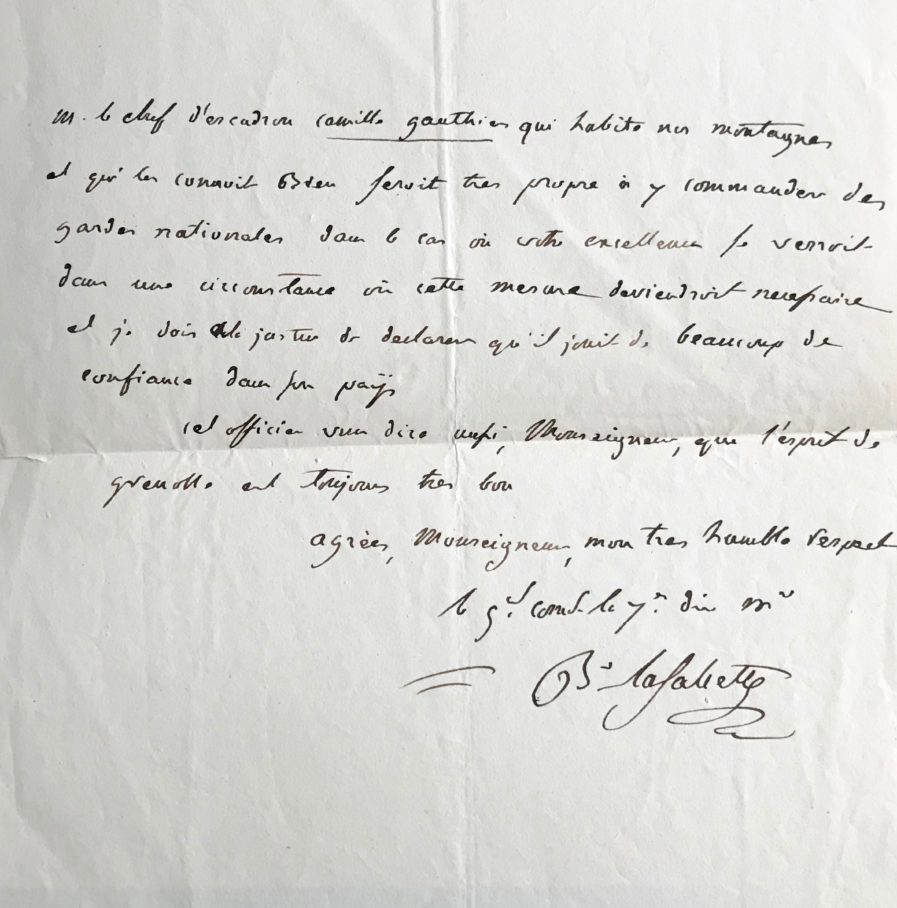 m. le chef d'escadron camille gauthier qui habite nos montagnes
et qui les connoit Bien seroit tres propre à y commander des
gardes nationales dans le cas où votre excellence se verroit
dans une circonstance où cette mesure deviendroit necessaire
et je dois à la justice de declarer qu'il jouit de beaucoup de
confiance dans son païs
cet officier vous dira aussi, Monseigneur, que l'esprit de
grenoble est toujours tres bon
agrées, Monseigneur, mon tres humble respect
le gl. comdt. la 7e. div mre
Bn. lasalcette